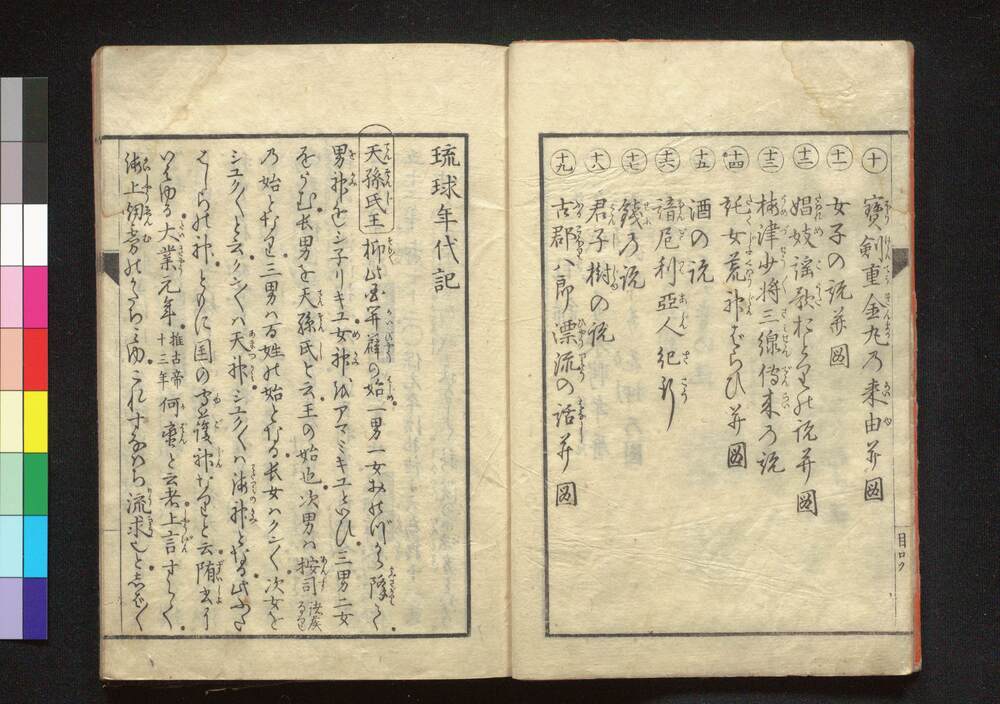 十 寶剣重金丸乃来由并図
十一 女子の説并図
十二 娼妓謡歌おどりの説并図
十三 梅津少将三線傳来乃説
十四 託女荒神ばらひ并図
十五 酒の説
十六 諳厄利亞人紀行
十七 銭乃説
十八 君子樹の説
十九 古郡八郎漂流の話并図
目ロク
琉球年代記
天孫氏王 抑此国開闢の始一男一女おのづから降りて
男神をシ子リキユ女神をアマミキユといひ三男二女
をうむ長男を天孫氏と云王の始也次男は按司 諸侯なり
乃始となり三男は百姓の始となる長女はクンく次女を
シユクくと云クンくハ天神シユクくハ海神となる此ふた
はしらの神ともに国の守護神なりと云隋書に
いはゆる大業元年 推古帝十三年 何蛮と云者上言すらく
海上烟
流求